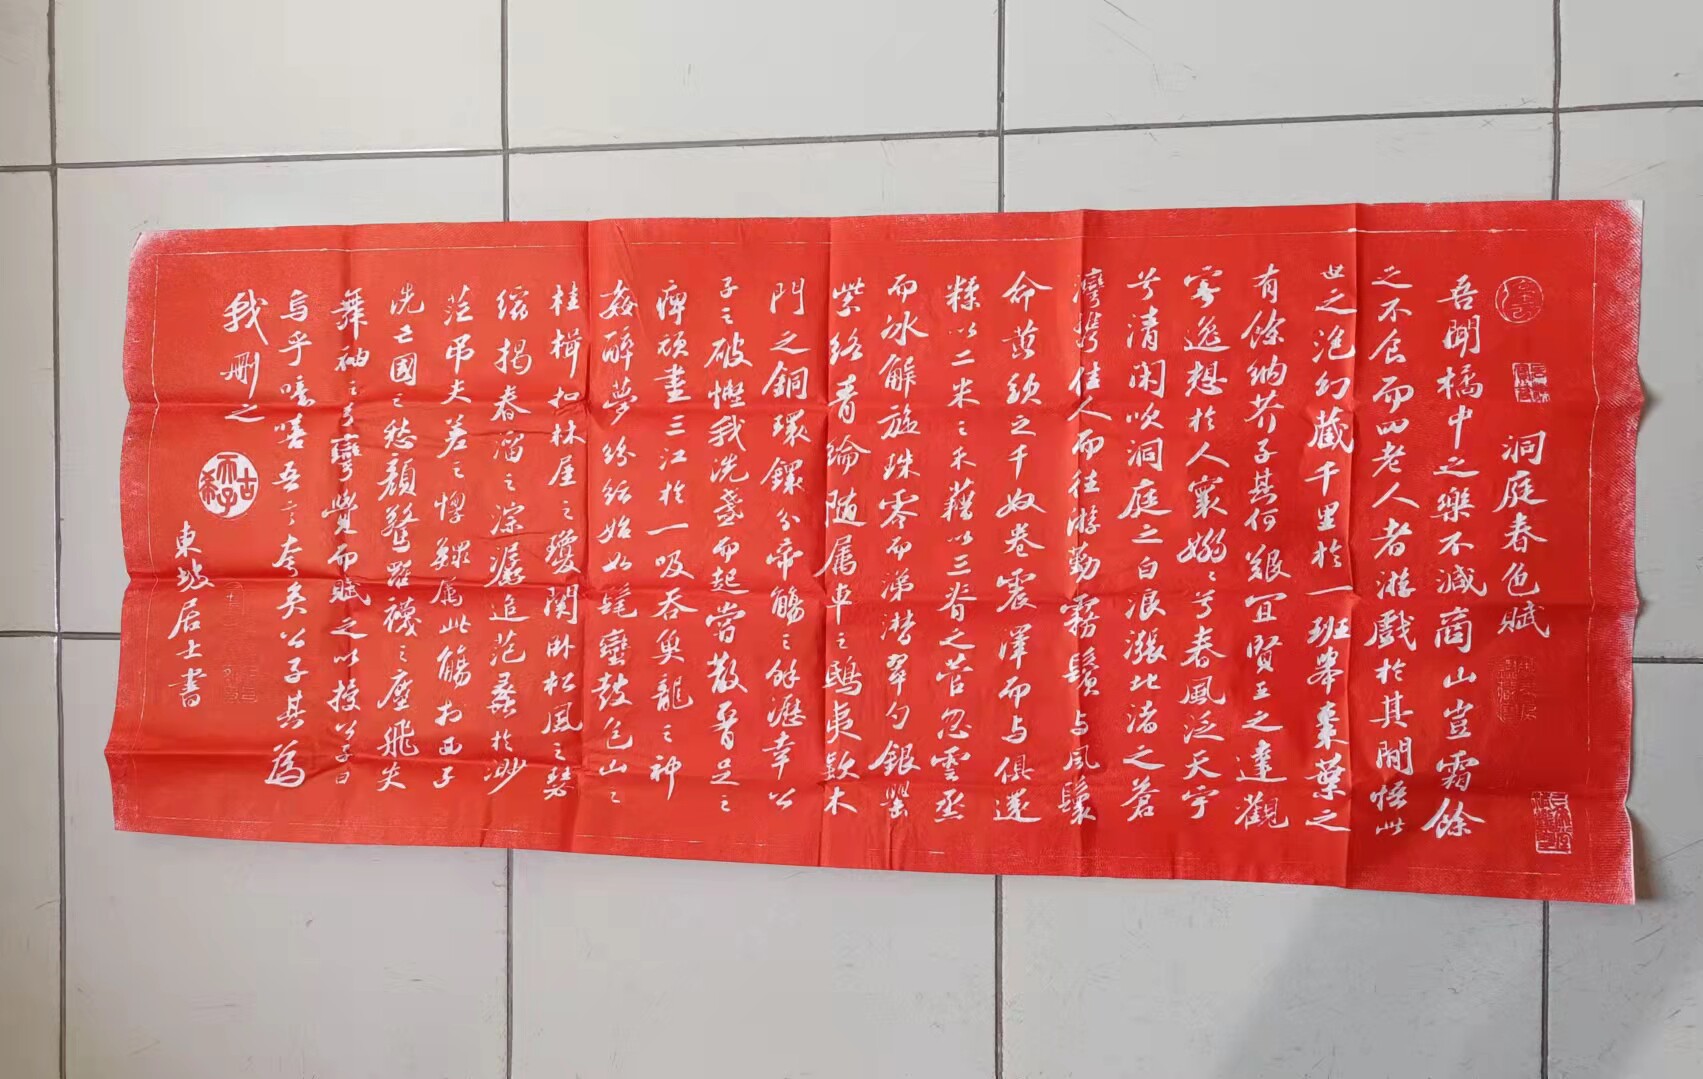 洞庭春色賦
吾聞橘中之樂不減商山豈霜餘
之不食而四老人者游戲於其間悟此
世之泡幻藏千里於一班舉棗葉之
有餘納芥子其何艱宜賢王之達觀
寄逸想於人寰嫋〻兮春風泛天宇
兮清閑吹洞庭之白浪漲北渚之蒼
灣攜佳人而往游勤霧鬢与風鬟
命黃頭之千奴卷震澤而与俱還
糅以二米之禾藉以三脊之菅忽雲烝
而冰解旋珠零而涕潸翠勺銀罌
紫絡青綸隨属車之鴟夷欵木
門之銅鐶分帝觴之餘瀝幸公
子之破慳我洗盞而起嘗散腰足之
痹頑盡三江於一吸吞魚龍之神
姦醉夢紛紜始如髦蠻鼓包山之
桂楫扣林屋之瓊関卧松風之瑟
縮揭春溜之淙潺追范蠡於渺
茫弔夫差之惸鰥属此觴於西子
洗亡國之愁顏驚羅襪之塵飛失
舞袖之弓彎覺而賦之以授公子曰
烏乎噫嘻吾言夸矣公子其為
我刪之
東坡居士書